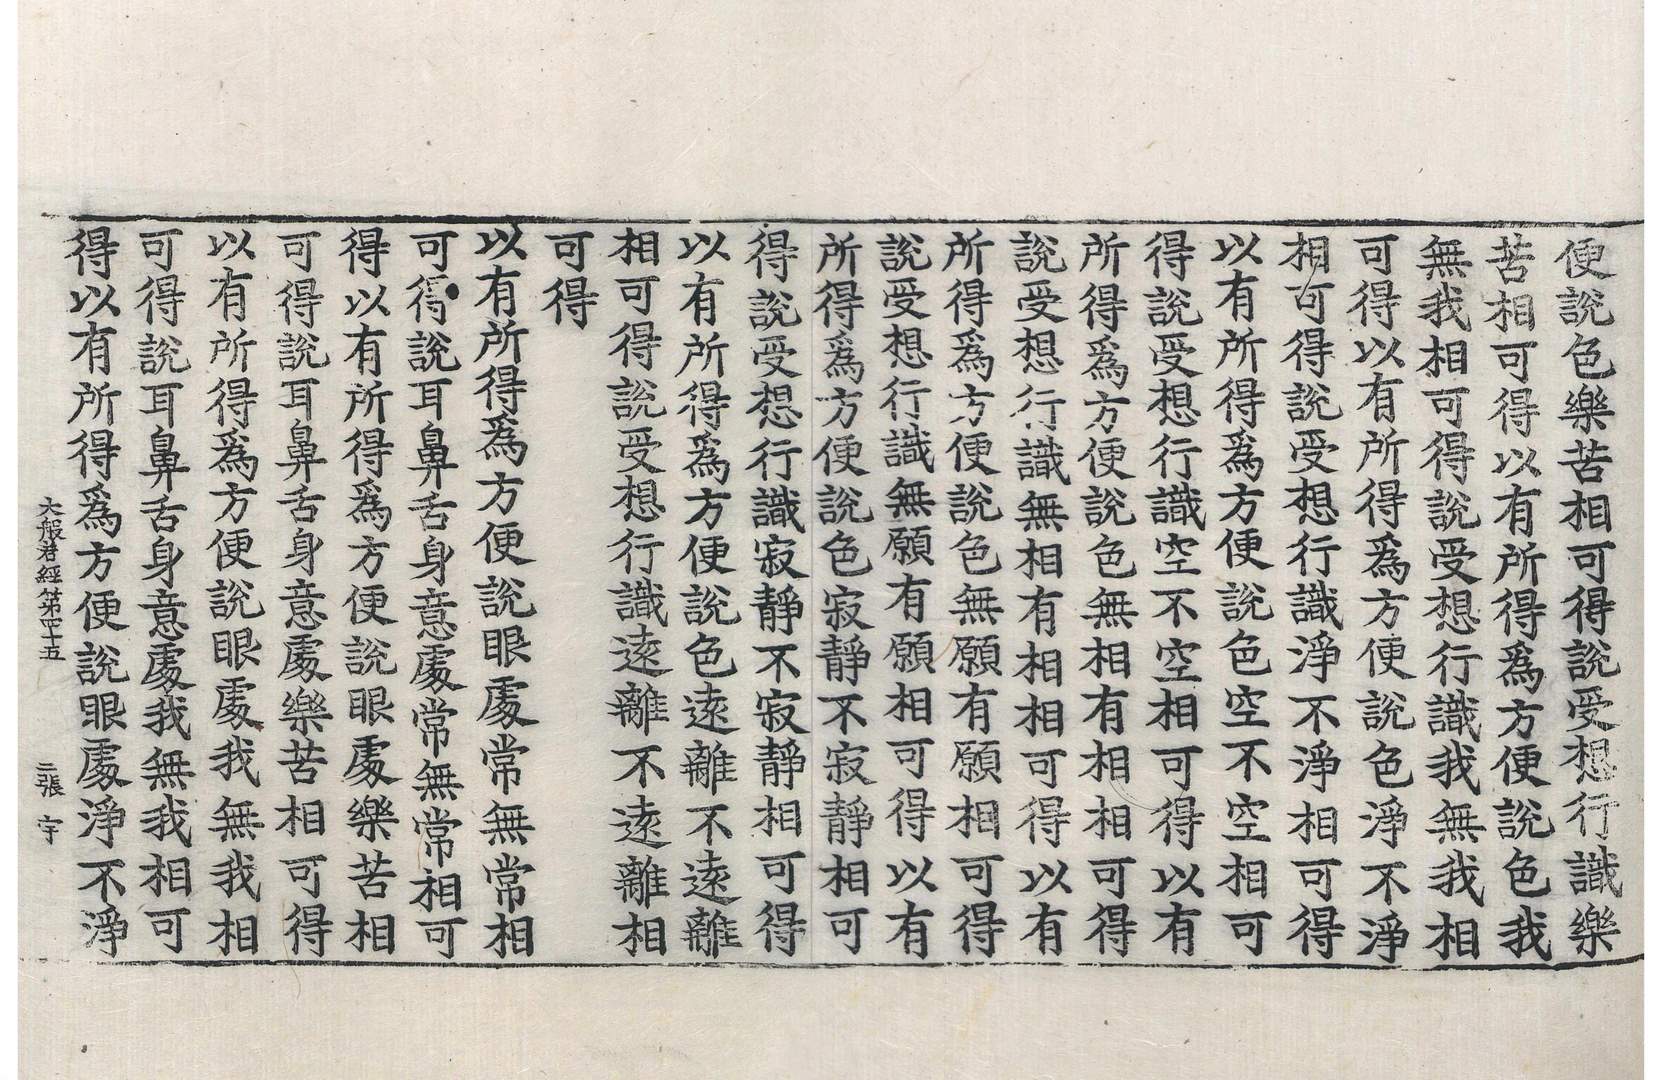 便說色樂苦相可得說受想行識樂
苦相可得以有所得爲方便說色我
無我相可得說受想行識我無我相
可得以有所得爲方便說色淨不淨
相可得說受想行識淨不淨相可得
以有所得爲方便說色空不空相可
得說受想行識空不空相可得以有
所得爲方便說色無相有相相可得
說受想行識無相有相相可得以有
所得爲方便說色無願有願相可得
說受想行識無願有願相可得以有
所得爲方便說色寂靜不寂靜相可
得說受想行識寂靜不寂靜相可得
以有所得爲方便說色遠離不遠離
相可得說受想行識遠離不遠離相
可得
以有所得爲方便說眼處常無常相
可得說耳鼻舌身意處常無常相可
得以有所得爲方便說眼處樂苦相
可得說耳鼻舌身意處樂苦相可得
以有所得爲方便說眼處我無我相
可得說耳鼻舌身意處我無我相可
得以有所得爲方便說眼處淨不淨
大般若經第四十五 二張 宇